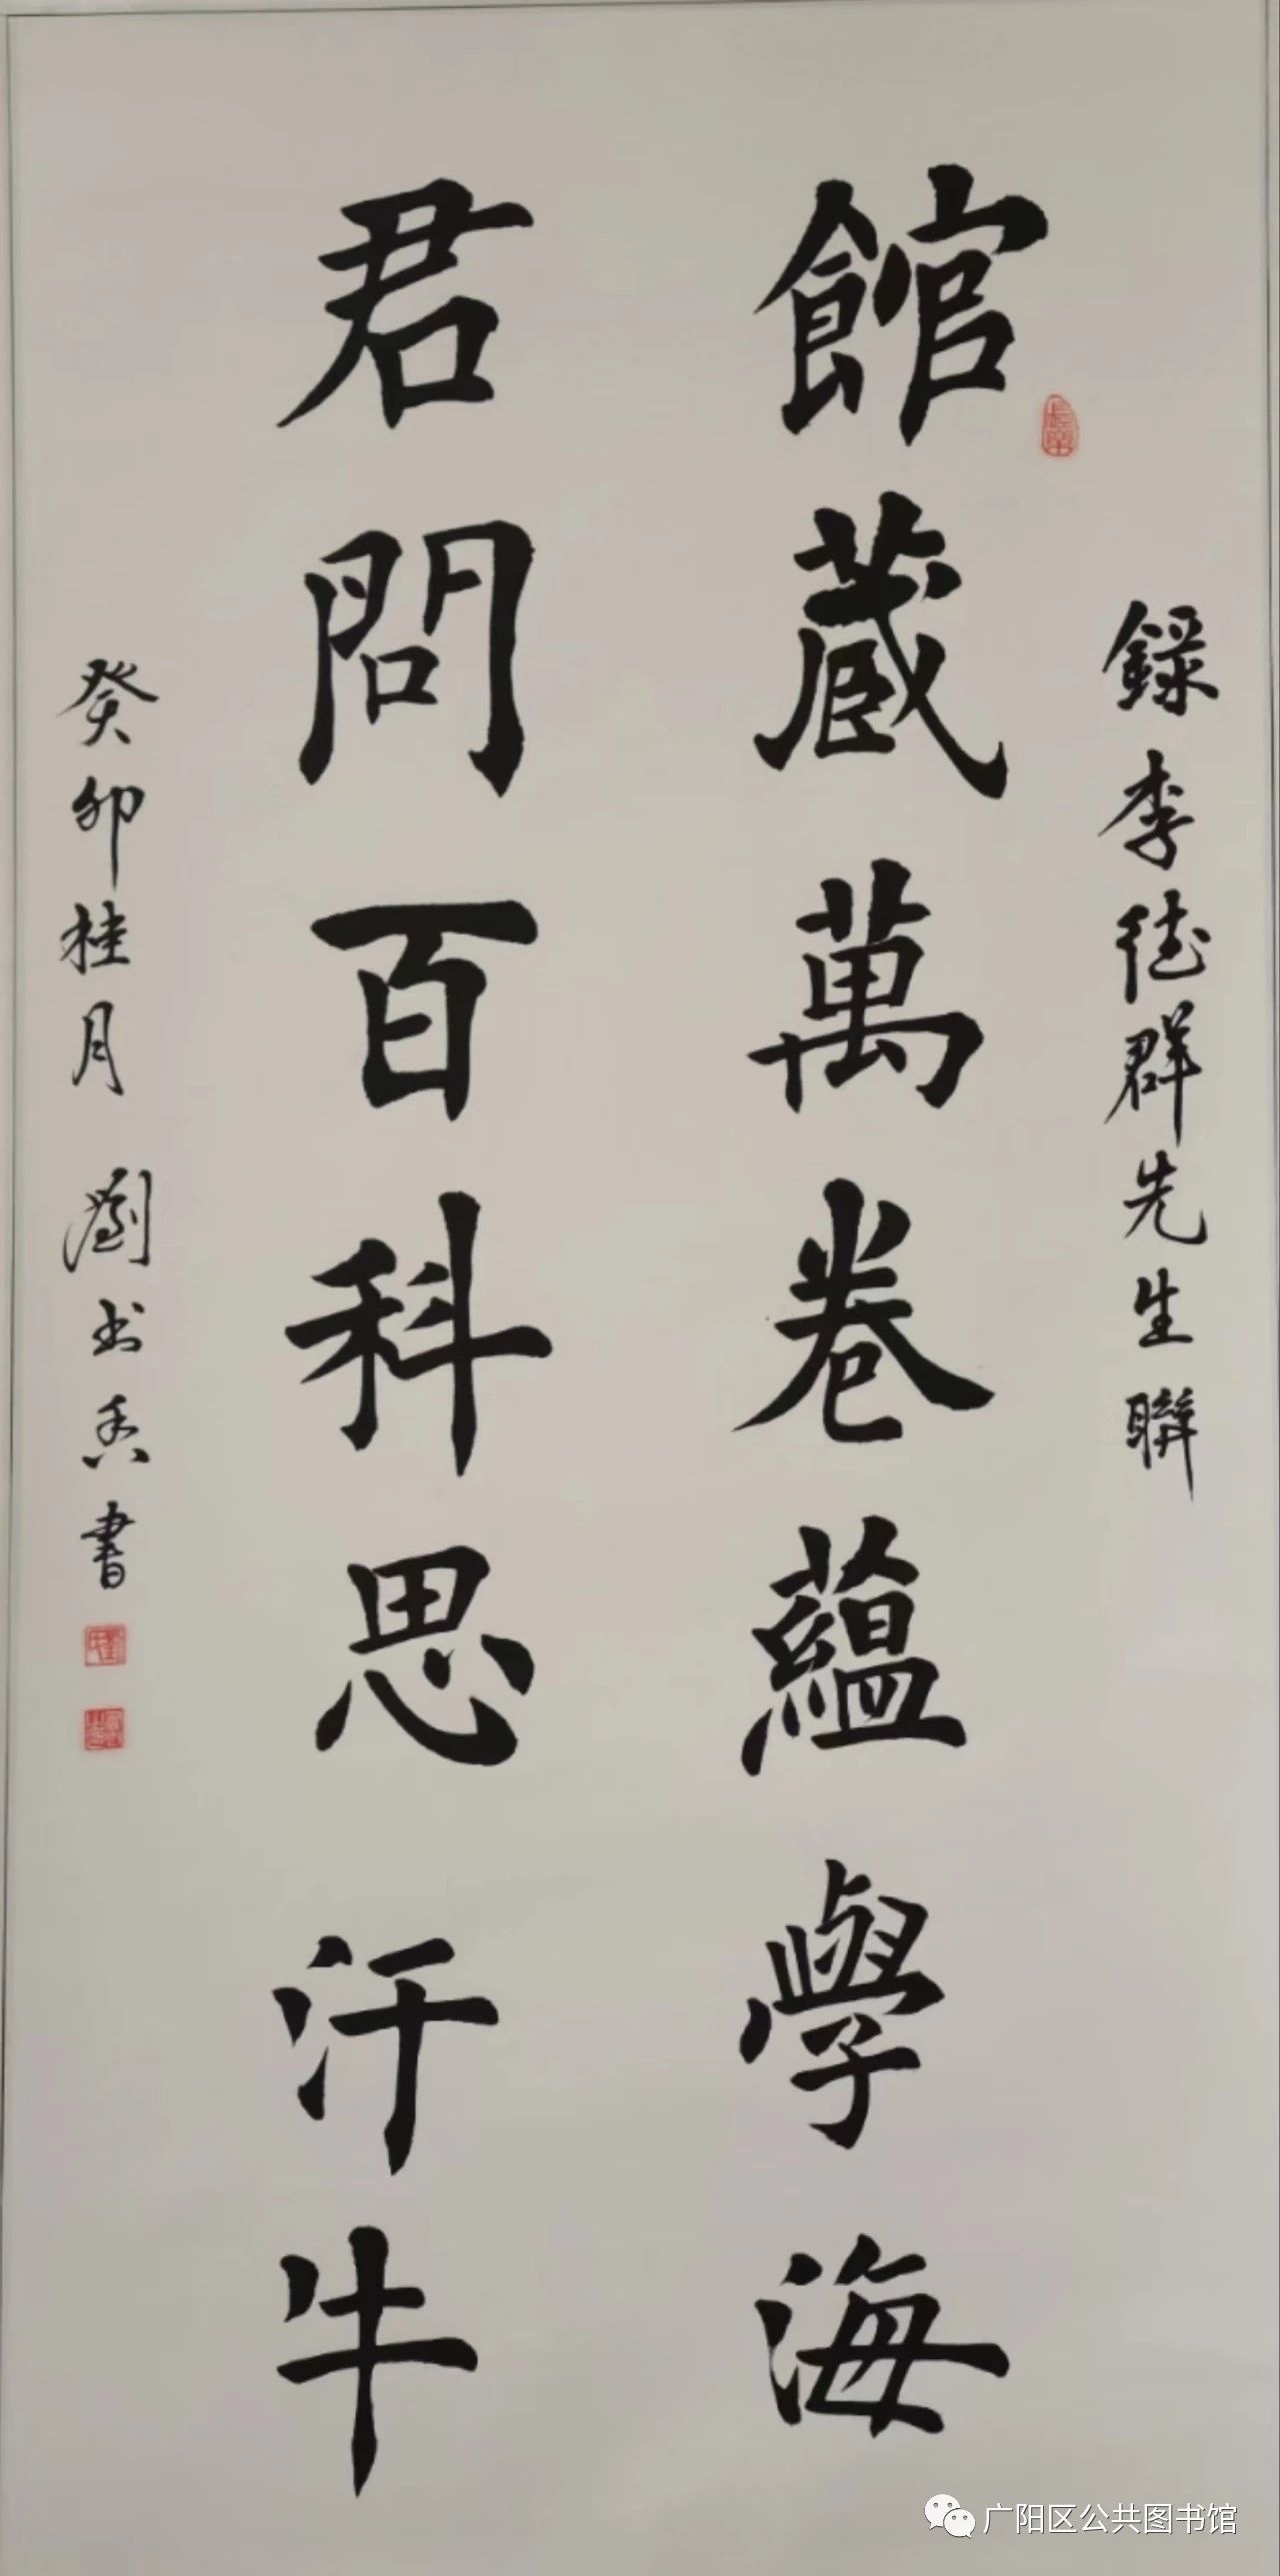 錄李德群先生聯
館藏萬卷蘊學海
君問百科思汗牛
癸卯桂月 劉書香書
广阳区公共图书馆